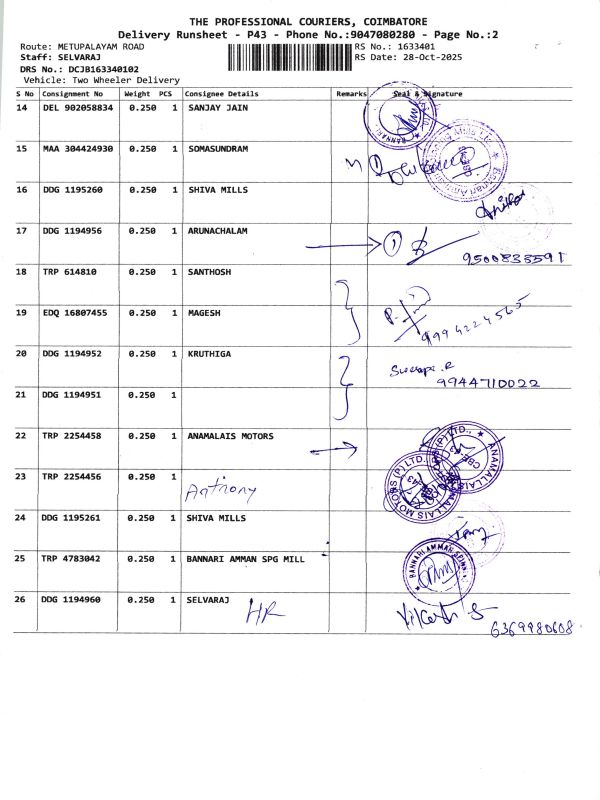 THE PROFESSIONAL COURIERS, COIMBATORE
Delivery Runsheet - P43 - Phone No.:9047080280 - Page No.:2
Route: METUPALAYAM ROAD RS No.: 1633401
Staff: SELVARAJ RS Date: 28-Oct-2025
DRS No.: DCJB163340102
Vehicle: Two Wheeler Delivery
S No Consignment No Weight PCS Consignee Details Remarks Seal & Signature
14 DEL 902058834 0.250 1 SANJAY JAIN
15 MAA 304424930 0.250 1 SOMASUNDRAM
16 DDG 1195260 0.250 1 SHIVA MILLS
17 DDG 1194956 0.250 1 ARUNACHALAM 1
9500833591
18 TRP 614810 0.250 1 SANTHOSH
19 EDQ 16807455 0.250 1 MAGESH
9994224565
20 DDG 1194952 0.250 1 KRUTHIGA
9944710022
21 DDG 1194951 0.250 1
22 TRP 2254458 0.250 1 ANAMALAIS MOTORS
ANAMALLAIS MOTORS (P) LTD.,
CBE-43
23 TRP 2254456 0.250 1 Antnony
24 DDG 1195261 0.250 1 SHIVA MILLS
25 TRP 4783042 0.250 1 BANNARI AMMAN SPG MILL
BANNARI AMMAN
26 DDG 1194960 0.250 1 SELVARAJ HR
6369980608